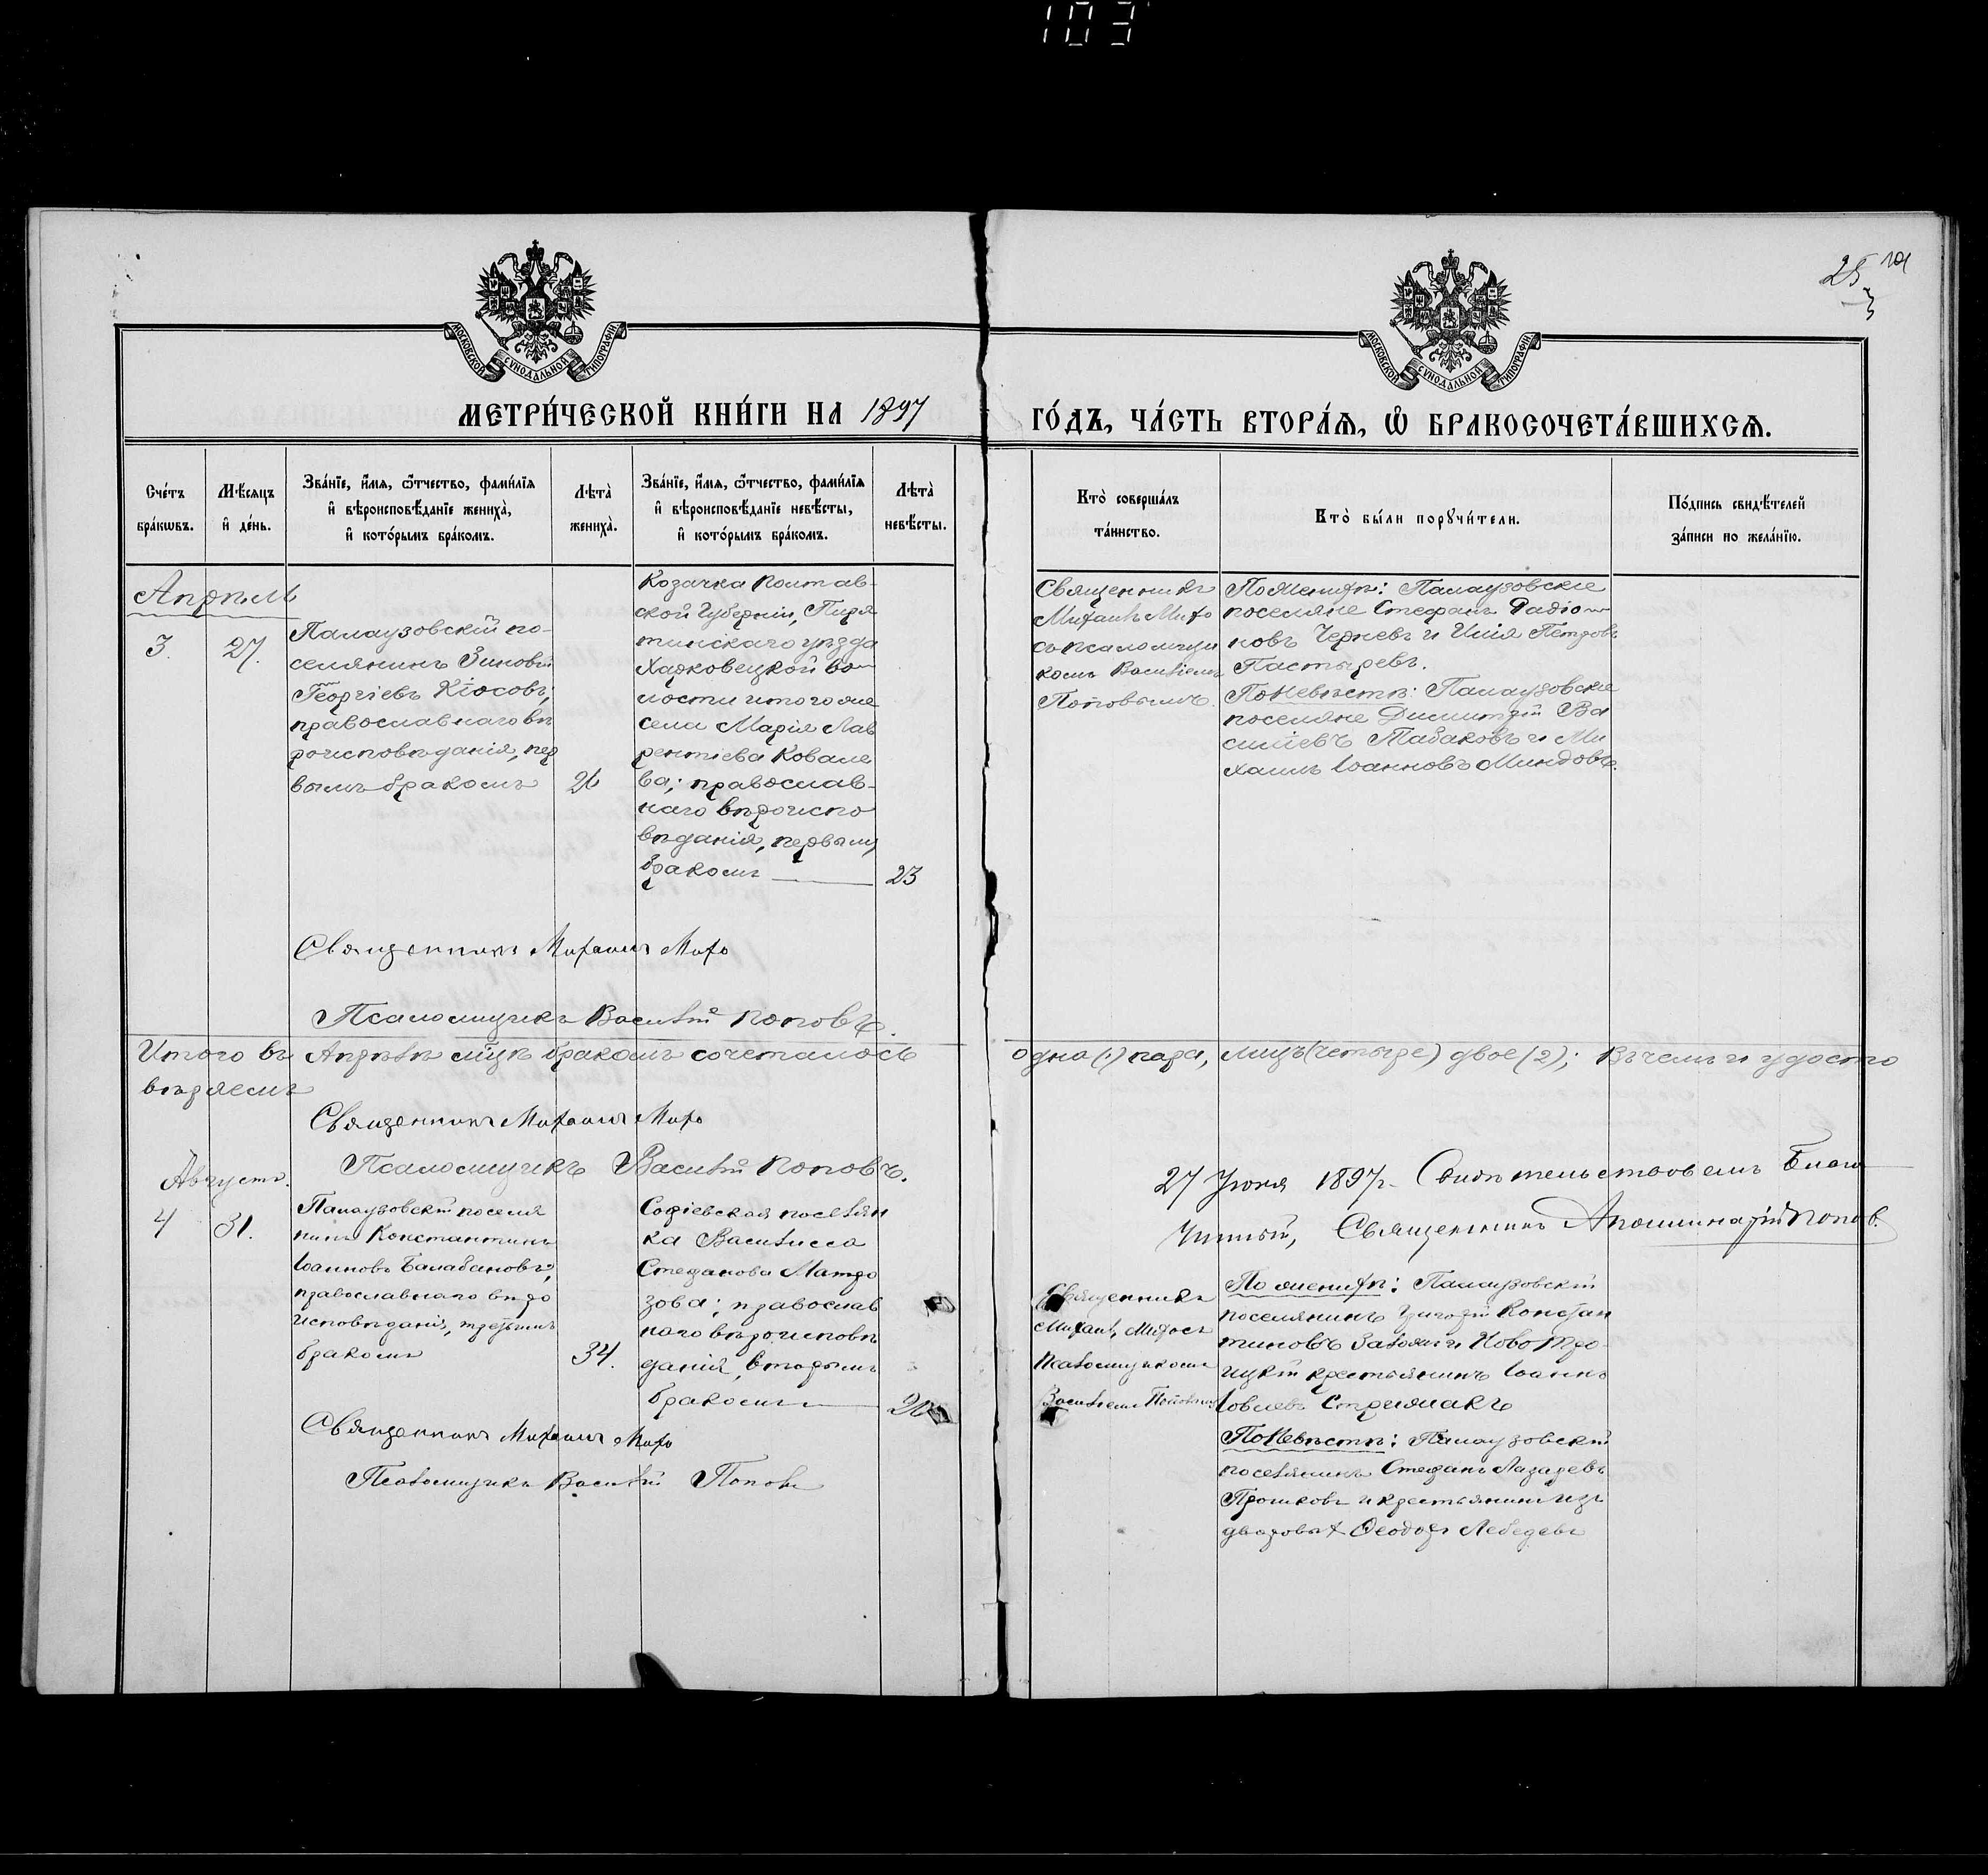 103
25
МОСКОВСКОЙ СУНОДАЛЬНОЙ ТИПОГРАФІИ
МОСКОВСКОЙ СУНОДАЛЬНОЙ ТИПОГРАФІИ
МЕТРИ́ЧЕСКОЙ КНИ́ГИ НА 1897
ГО́ДЪ, ЧА́СТЬ ВТОРА́Ѧ, Ѽ БРАКОСОЧЕТА́ВШИХСѦ.
Сче́тъ
бра́кѡвъ.
Мѣ́сяцъ
и҆ де́нь.
Зва́нїе, и҆́мя, ѻ҆́тчество, фами́лїя
и҆ вѣроисповѣ́данїе жениха̀,
и҆ кото́рымъ бра́комъ.
Лѣта̀
жениха̀.
Зва́нїе, и҆́мя, ѻ҆́тчество, фами́лїя
и҆ вѣроисповѣ́данїе невѣ́сты,
и҆ кото́рымъ бра́комъ.
Лѣта̀
невѣ́сты.
Кто̀ соверша́лъ
та́инство.
Кто̀ бы́ли порꙋчи́тели.
По́дпись свидѣ́телей
за́писи по жела́нїю.
Апрѣль
3. 27.
Палаузовскій по-
селянинъ Зиновій
Георгіевъ Кіосовъ;
православнаго вѣ
роисповѣданія, пер
вымъ бракомъ
26
Козачка Полтав-
ской Губерніи, Пиря
тинскаго уѣзда
Харковецкой во-
лости и того же
села Марія Лав
рентіева Ковале
ва; православ-
наго вѣроиспо
вѣданія, первымъ
бракомъ
23
Священникъ
Михаилъ Михо
съ псаломщи
комъ Василіемъ
Поповымъ.
По Женихѣ: Палаузовскіе
поселяне Стефанъ Радіо-
новъ Черневъ и Илія Петровъ
Пастыревъ.
По Невѣстѣ: Палаузовскіе
поселяне Димитрій Ва
силіевъ Табаковъ и Ми
хаилъ Іоанновъ Миндовъ.
Священникъ Михаилъ Михо
Псаломщикъ Василій Поповъ.
Итого въ Апрѣлѣ мцѣ бракомъ сочеталось
одна (1) пара, лицъ (четыре) двое (2); Въ чемъ и удосто
вѣряемъ
Священникъ Михаилъ Михо
Псаломщикъ Василій Поповъ.
27 Іюня 1897 г. Свидѣтельствовалъ Благо
чинный, Священникъ Аполлинарій Поповъ.
Августъ.
4 31.
Палаузовскій поселя
нинъ Константинъ
Іоанновъ Балабановъ;
православнаго вѣро
исповѣданія, третьимъ
бракомъ
34.
Софіевская поселян
ка Василисса
Стефанова Матро
зова; православ
наго вѣроисповѣ
данія, вторымъ
бракомъ
Священникъ
Михаилъ Михо съ
Псаломщикомъ
Василіемъ Поповымъ
По женихѣ: Палаузовскій
поселянинъ Григорій Констан
тиновъ и Ново Тро-
ицкій крестьянинъ Іоаннъ
Іовлевъ Стрижакъ
По Невѣстѣ: Палаузовскій
поселянинъ Стефанъ Лазаревъ
Прошковъ и крестьянинъ изъ
дворовыхъ Ѳеодоръ Лебедевъ
Священникъ Михаилъ Михо
Псаломщикъ Василій Поповъ